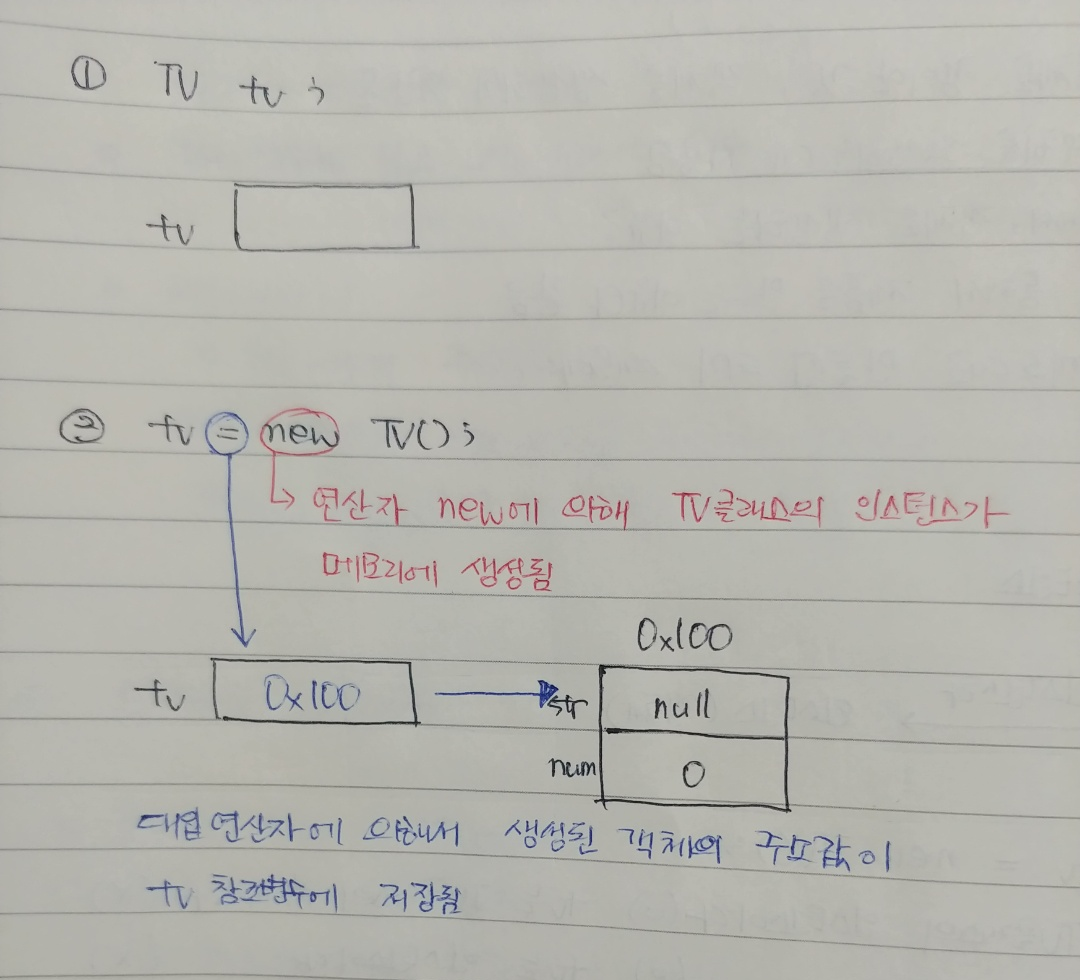 ① TV tv ;
tv
② tv = new TV() ;
↳ 연산자 new에 의해 TV클래스의 인스턴스가
메모리에 생성됨
0x100
tv 0x100 str null
num 0
대입연산자에 의해서 생성된 객체의 주소값이
tv 참조변수에 저장됨